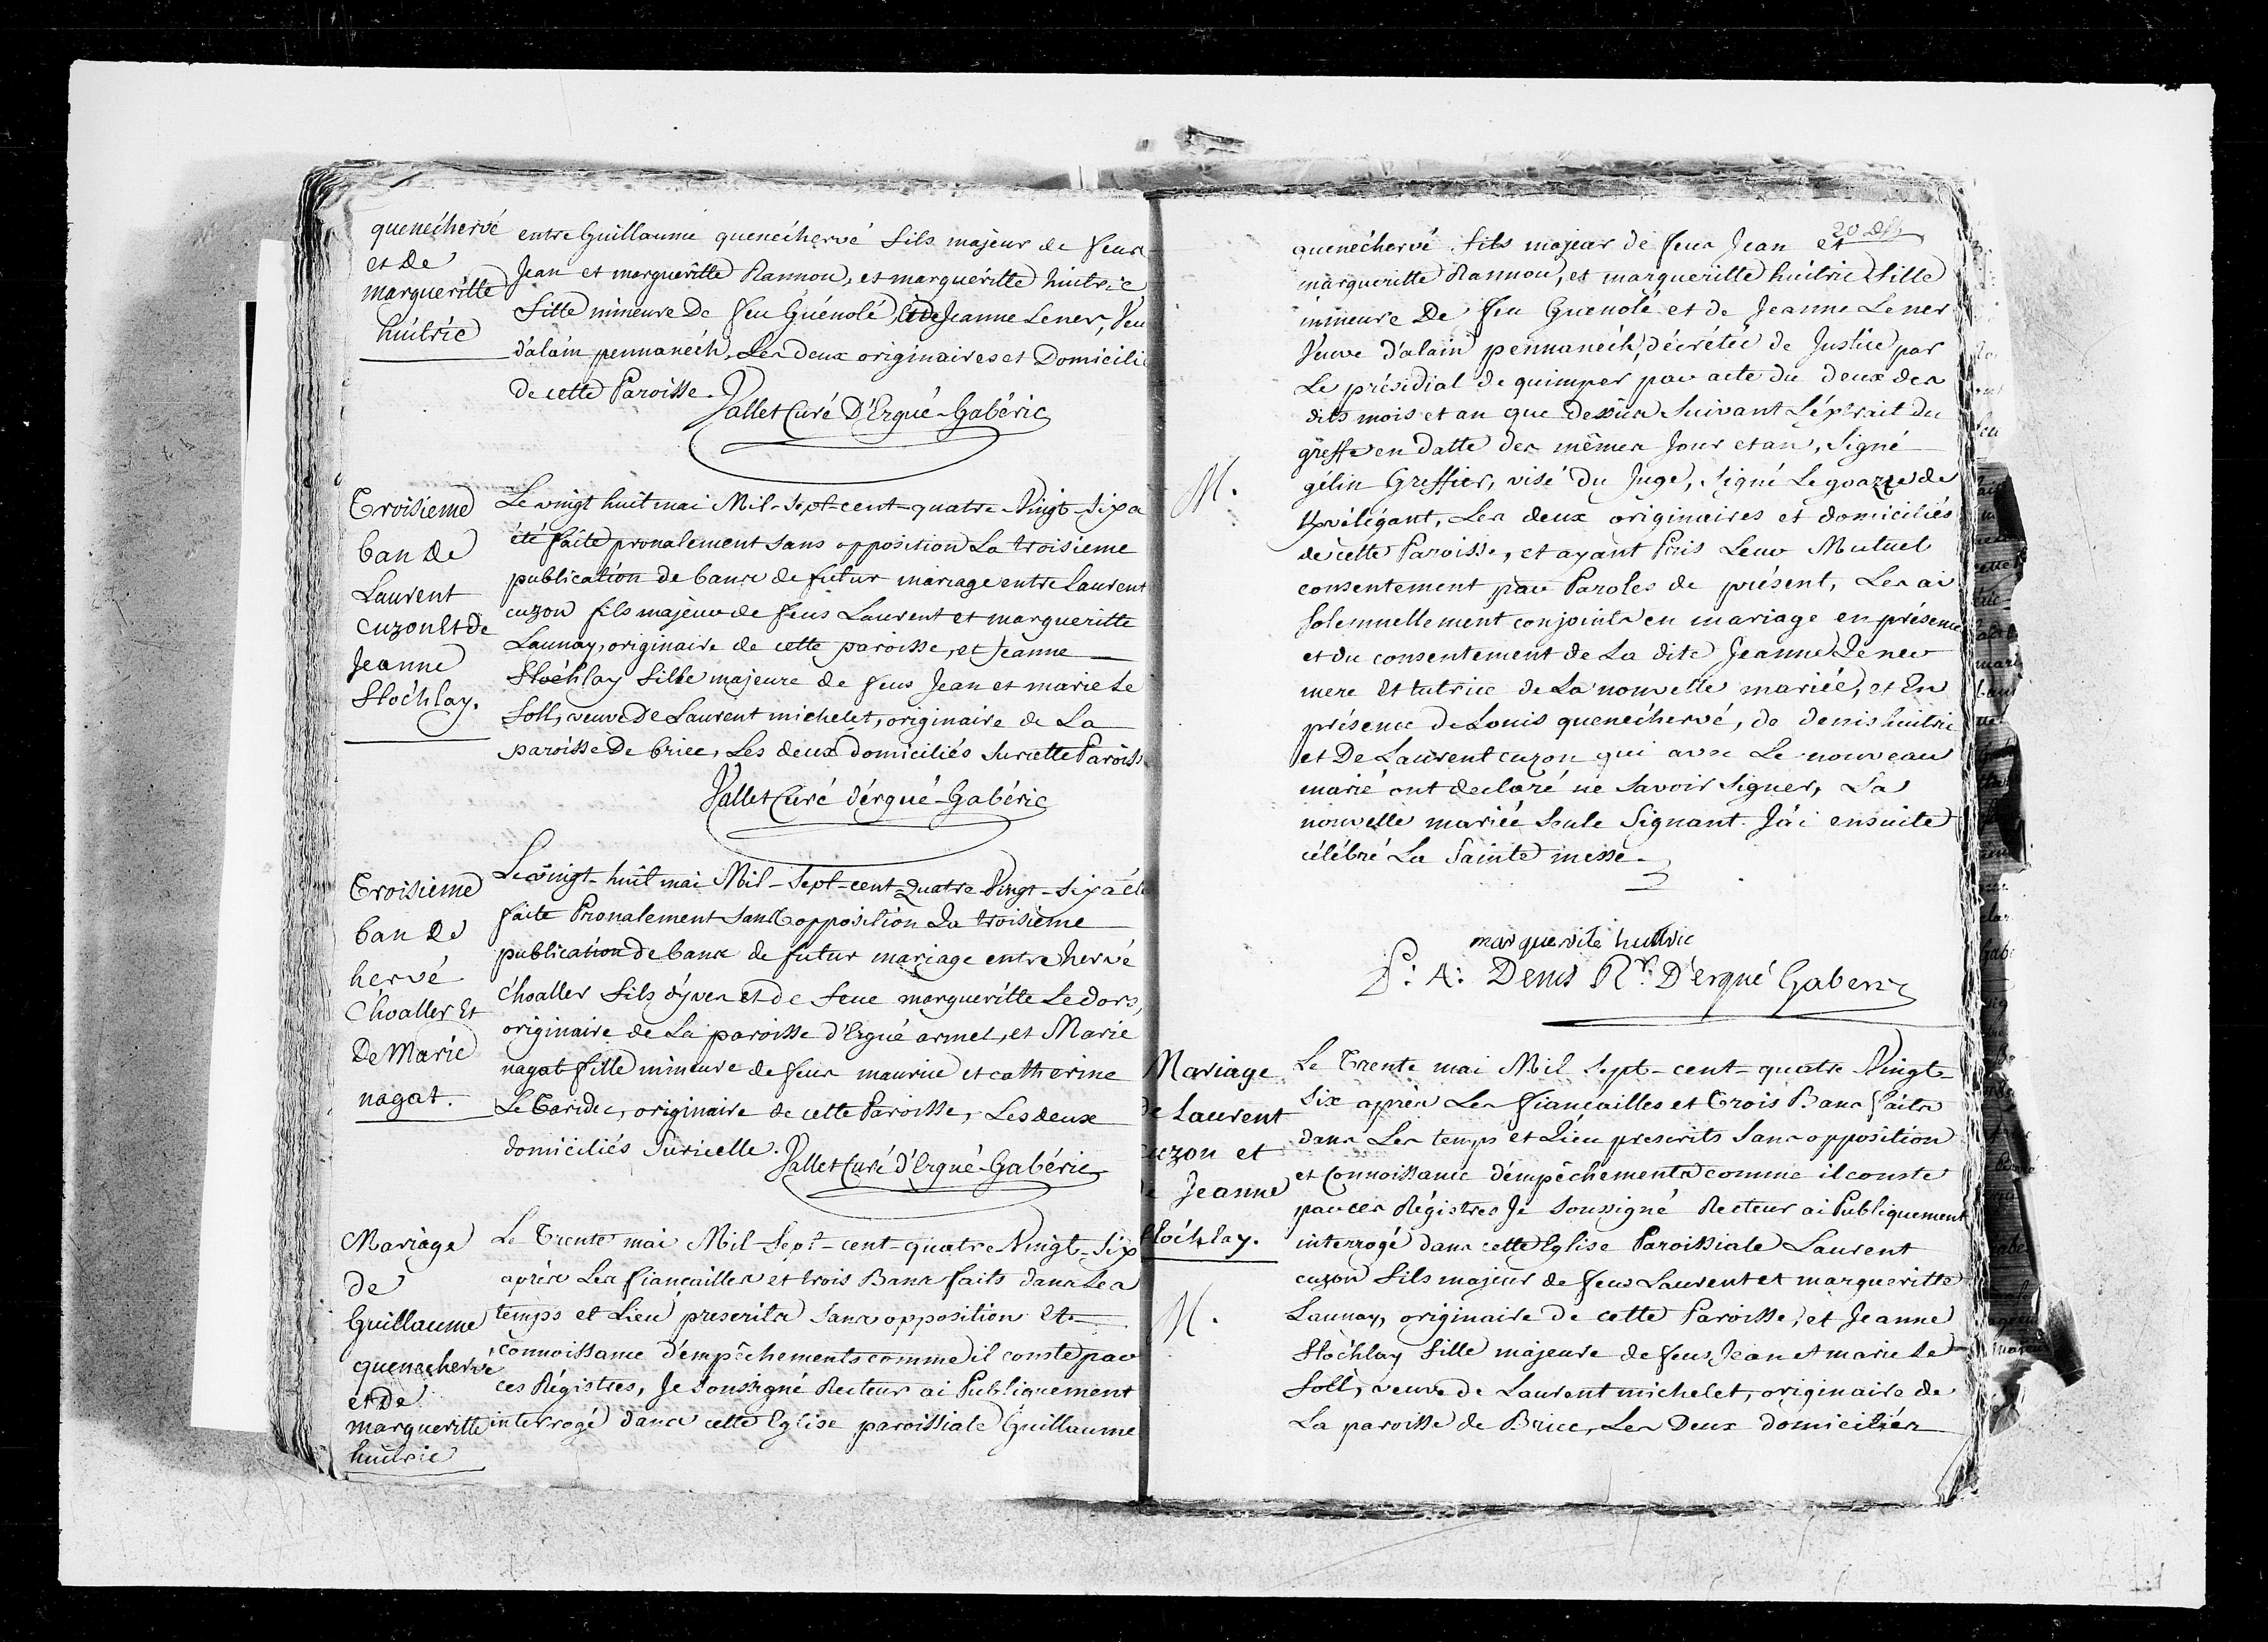 quenéchervé
et de
margueritte
huitric
entre Guillaume quenéchervé fils majeur de feus
Jean et marguéritte Rannou, et marguéritte huitric
fille mineure De feu Guénolé, et de Jeanne Lener, Veu
d'alain pennanéch, Les deux originaires et Domicili
de cette Paroisse.
Vallet Curé D'Ergué-Gabéric
Troisieme
ban de
Laurent
cuzon Et de
Jeanne
Stoéhlay.
Le vingt huit mai Mil-Sept-cent-quatre-Vingt-Six a
été faite pronalement sans opposition La troisieme
publication de bans de futur mariage entre Laurent
cuzon fils majeur de feus Laurent et margueritte
Launay, originaire de cette paroisse, et Jeanne
Stoéhlay fille majeure de feus Jean et marie Le
Joll, veuve De Laurent michelet, originaire de La
paroisse De briec, Les deux domiciliés Sur cette Paroiss
Vallet Curé d'érgué-Gabéric
Troisieme
ban de
hervé
C'hoaller Et
De Marie
nagat.
Le vingt-huit mai Mil-Sept-cent-Quatre-Vingt-Six a été
faite Pronalement sans opposition La troisieme
publication de bans de futur mariage entre hervé
C'hoaller fils d'yves et de feue marguéritte Ledors,
originaire de La paroisse d'Ergué armel, et Marie
nagat fille mineure de feus maurice et catherine
Le Caridec, originaire de cette Paroisse, Les deux
domiciliés Suricelle.
Vallet Curé d'Ergué-Gabéric
Mariage
de
Guillaume
quenechervé
et de
marguéritte
huitric
Le Trente mai Mil-Sept-cent-quatre Vingt-Six
après Les fiançailles et trois Bans faits dans Les
temps et Lieu prescrits sans opposition Et
connoissance d'empêchements comme il conste par
ces Régistres, Je Soussigné Recteur ai Publiquement
interrogé dans cette Eglise paroissiale Guillaume
20
quenéchervé fils majeur de feus Jean et
marguéritte Rannou, et marguerite huitric fille
mineure De feu Guenolé et de Jeanne Lener
Veuve d'alain pennanéch, décrétée de Justice par
Le présidial de quimper par acte du deux des
dits mois et an que dessus Suivant L'éxtrait du
gréffe en datte des mêmes Jour et an, Signé
gélin Greffier, visé du Juge, Signé Le goazre de
Kvélégant, Les deux originaires et domiciliés
de cette Paroisse, et ayant Pris Leur Mutuel
consentement par Paroles de présent, Les ai
Solemnellement conjoints en mariage en présence
et du consentement de La dite Jeanne Lener
mere Et tutrice de La nouvelle mariée, et En
présence de Louis quenéchervé, de denis huitric
et De Laurent cuzon qui avec Le nouveau
marié ont déclaré ne savoir signer, La
nouvelle mariée Seule Signant. J'ai ensuite
célébré La Sainte messe.
M.
marguerite huitric
P: A: Denis Rr. D'ergué Gaberic
Mariage
de Laurent
cuzon et
de Jeanne
Stoéhlay.
M.
Le Trente mai Mil Sept-cent-quatre Vingt-
Six après Les fiançailles et Trois Bans faits
dans Les temps et Lieu prescrits Sans opposition
et Connoissance d'empêchements comme il conste
par ces Régistres Je Soussigné Recteur ai Publiquement
interrogé dans cette Eglise Paroissiale Laurent
cuzon fils majeur de feus Laurent et marguéritte
Launay, originaire de cette Paroisse, et Jeanne
Stoéhlay fille majeure de feus Jean et marie Le
Joll, veuve de Laurent michelet, originaire de
La paroisse de Briec, Les Deux domiciliés